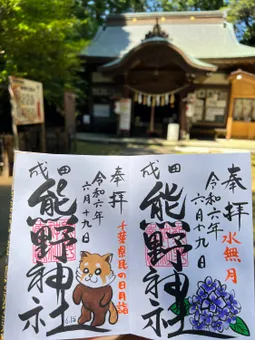 奉拝
水無月
令和六年
六月十九日
成田
熊野神社
奉拝
千葉県民の日月詣
令和六年
六月十九日
成田
熊野神社